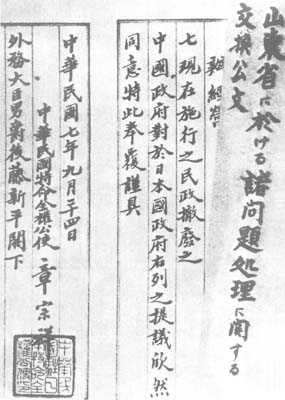 山東省に於ける諸問題処理に関する
交換公文
七現在施行之民政撤廢之
中國政府對於日本國政府右列之提議欣然
同意特此奉覆謹具
中華民國七年九月二十四日
中華民國特命全權公使 章宗祥
外務大臣男爵後藤新平閣下